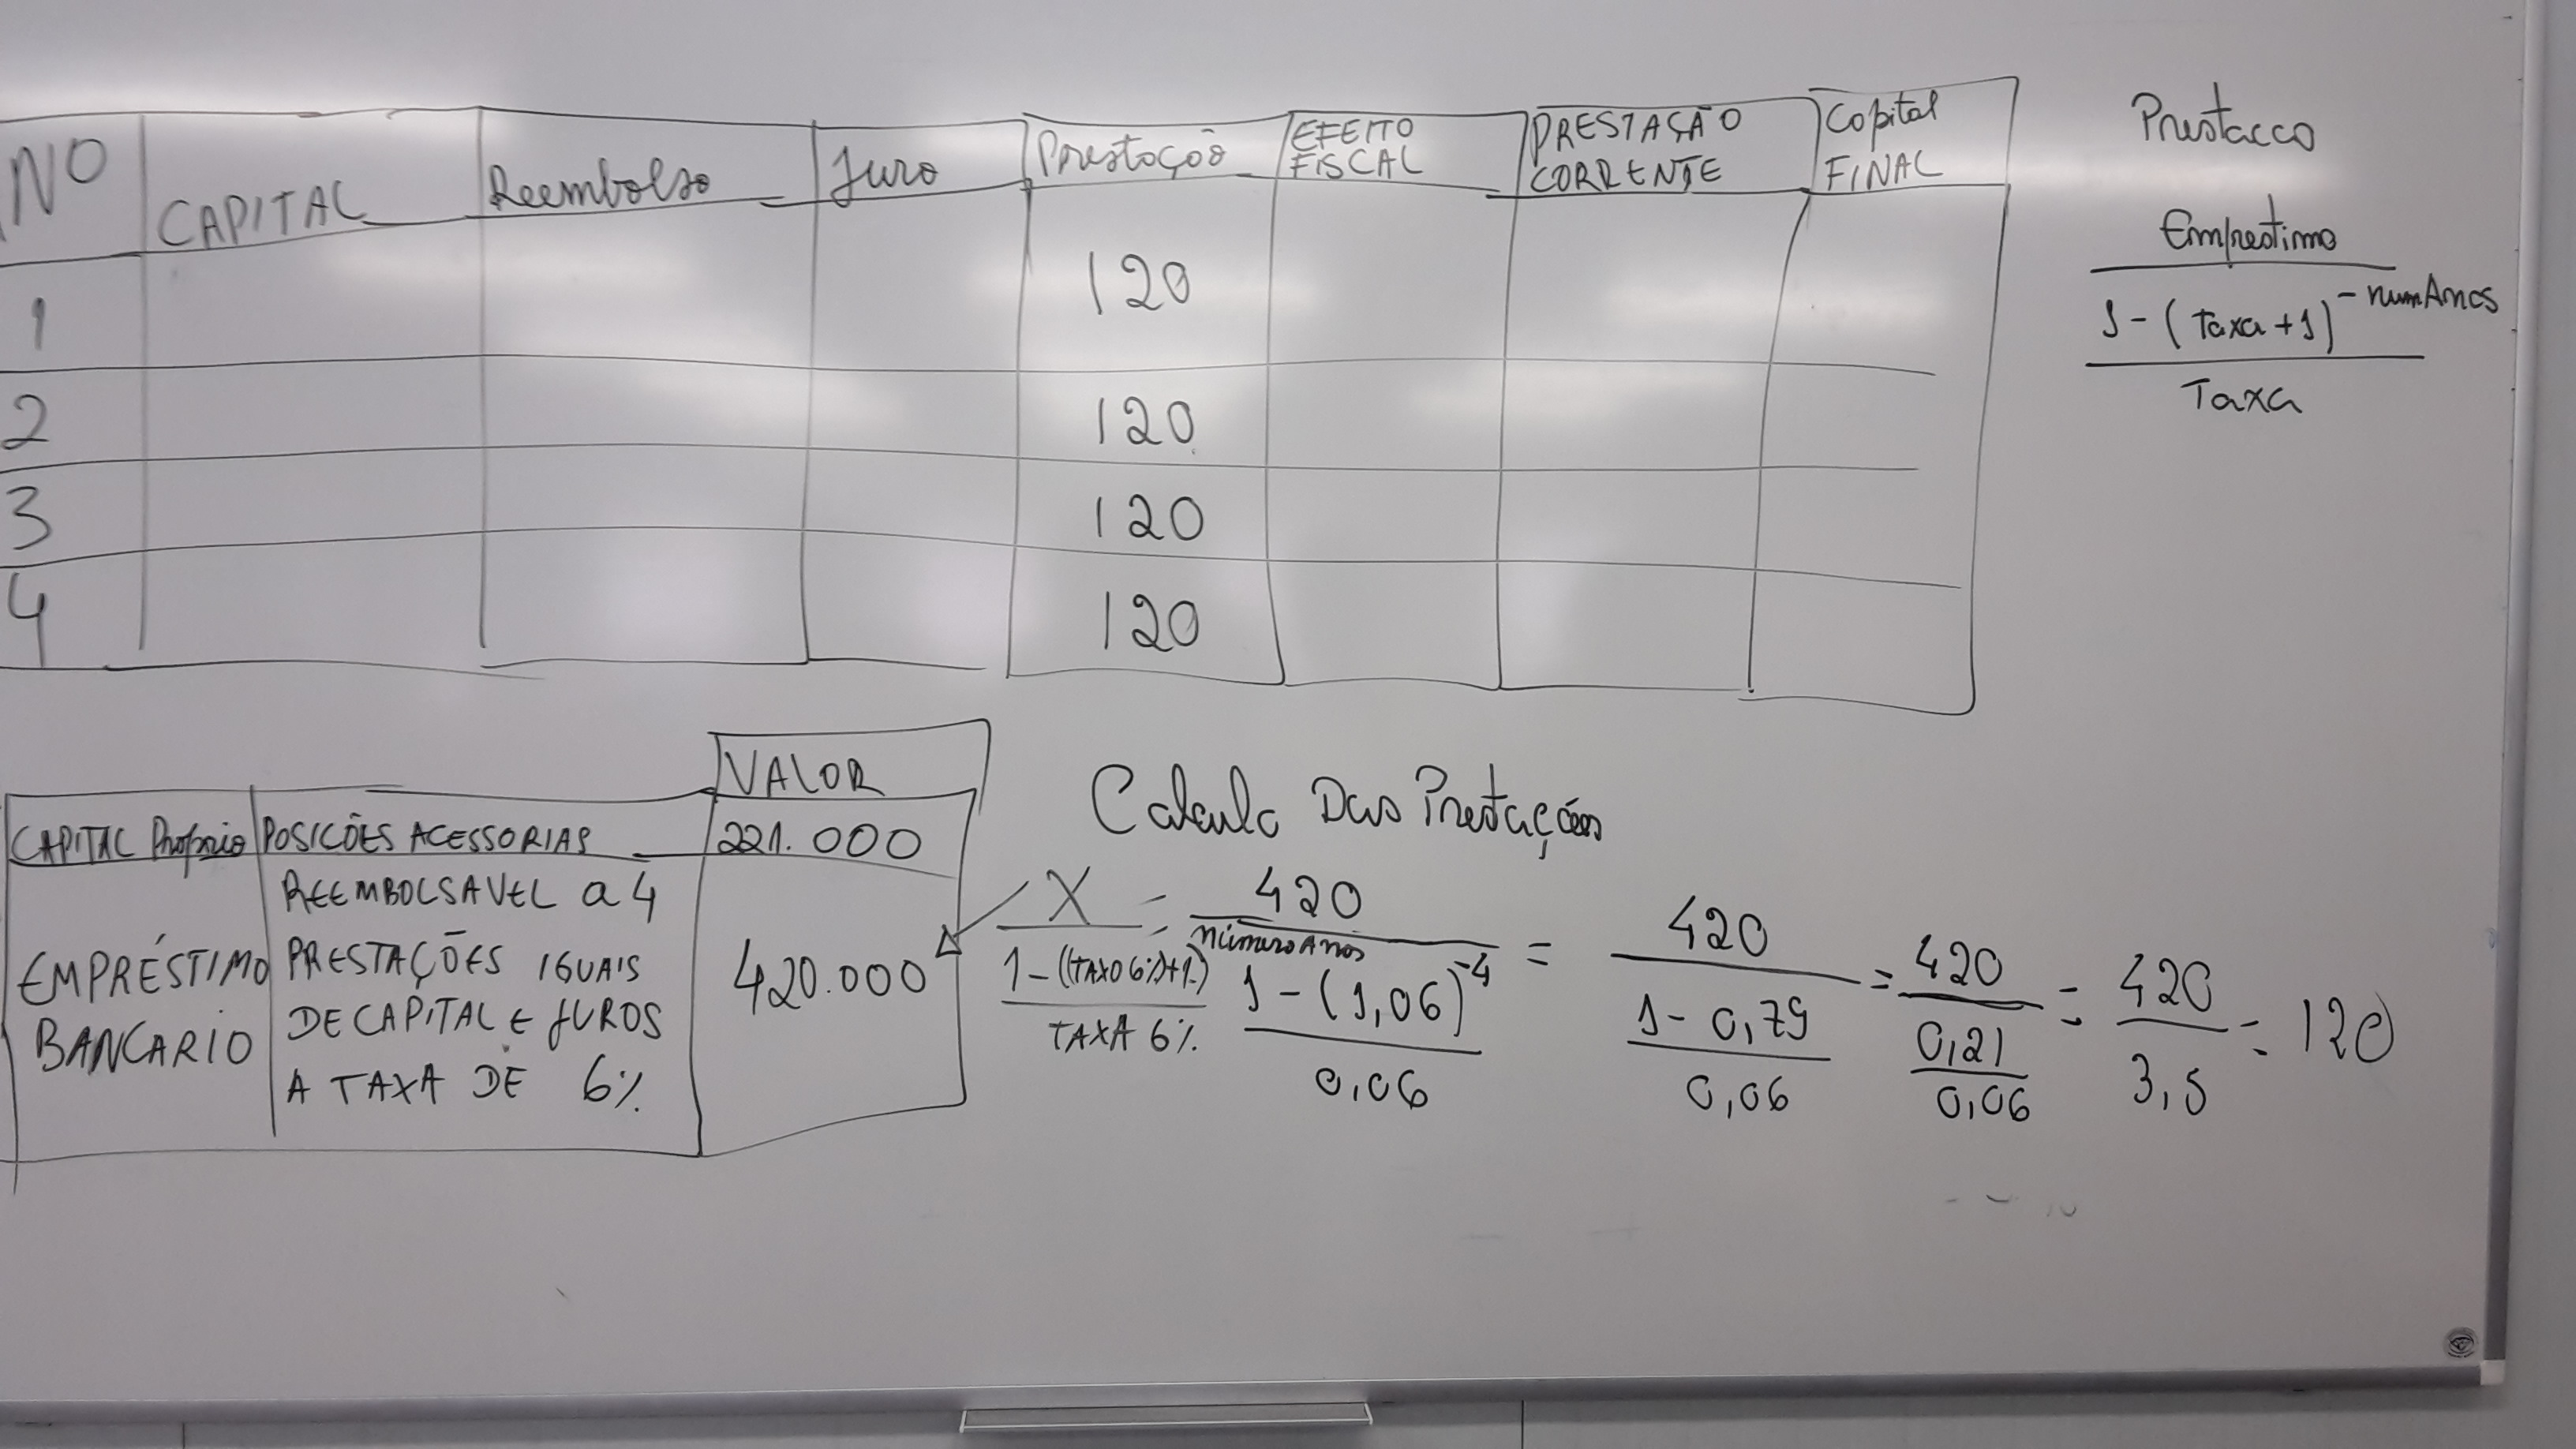 NO CAPITAL Reembolso Juro Prestação EFEITO FISCAL PRESTAÇÃO CORRENTE Capital FINAL
1 120
2 120
3 120
4 120
Prestacao
Emprestimo
1 - (Taxa + 1)^-numAnos
Taxa
VALOR
CAPITAL Proprio POSIÇÕES ACESSORIAS 221.000
EMPRÉSTIMO BANCARIO
REEMBOLSAVEL a 4
PRESTAÇÕES IGUAIS
DE CAPITAL E JUROS
A TAXA DE 6%
420.000
Calculo Das Prestações
X = 420 = 420 = 420 = 420 = 120
númeroAnos
1 - ((TAXA 6%)+1) 1 - (1,06)^-4 1 - 0,79 0,21 3,5
TAXA 6% 0,06 0,06 0,06